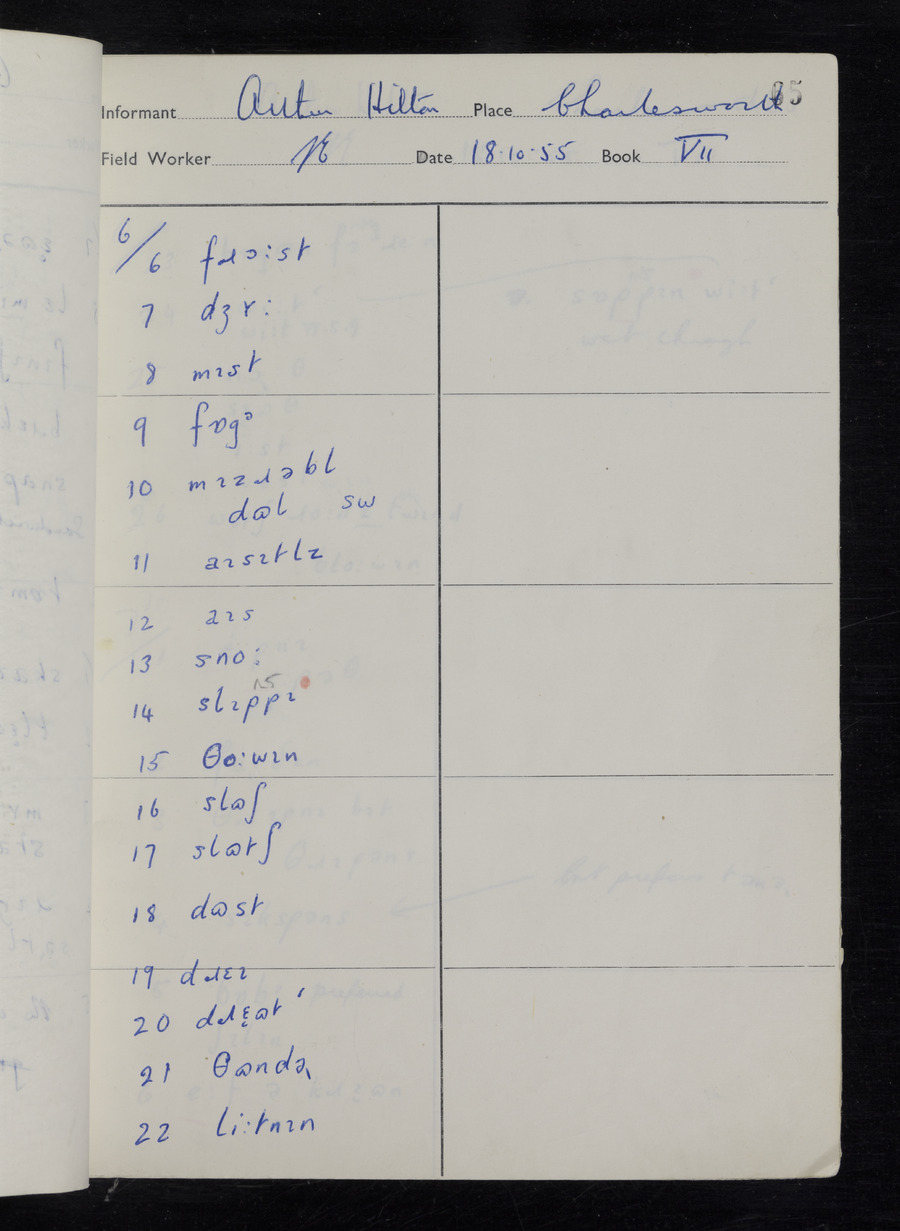 35
Informant Arthur Hilton Place Charlesworth
Field Worker Date 18.10.55 Book VII
6/6 fɹɔːst
7 dʒɤː
8 mɪst
9 fɒgᵊ
10 mɪzɹəbl
dɷl sw
11 aɪsɪtlz
12 aɪs
13 snoː
15
14 slɪppɪ
15 θoːwɪn
16 slɷʃ
17 slɷtʃ
18 dɷst
19 dɹɛɪ
20 dɹɛɷt'
21 θɷndə
22 liːtnɪn